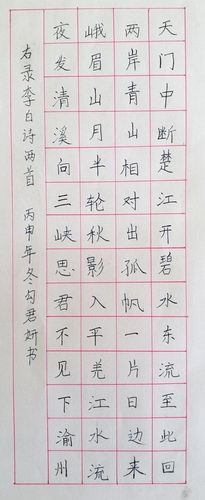 天门中断楚江开碧水东流至此回
两岸青山相对出孤帆一片日边来
峨眉山月半轮秋影入平羌江水流
夜发清溪向三峡思君不见下渝州
右录李白诗两首 丙申年冬勾君妍书